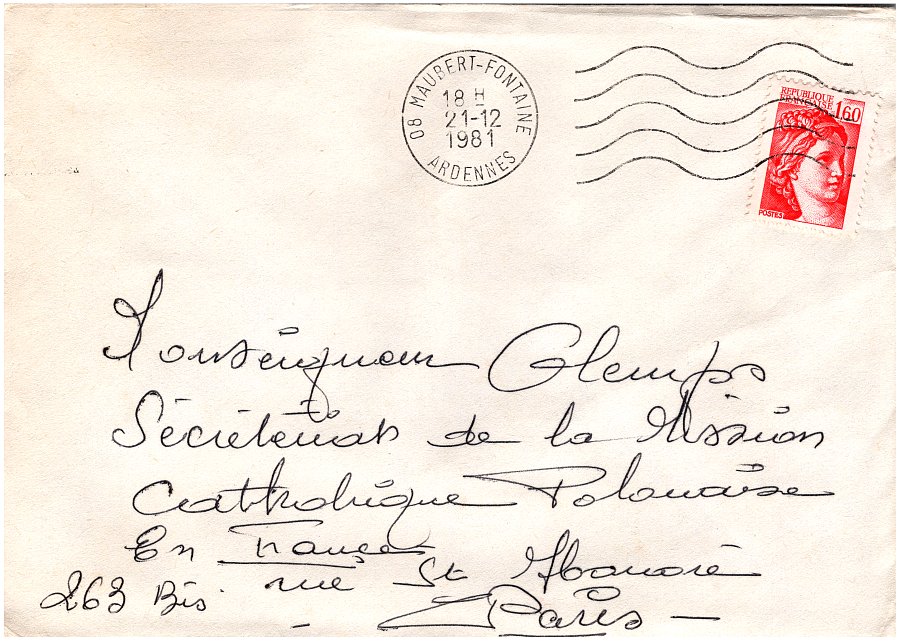 08 MAUBERT-FONTAINE
18 H
21-12
1981
ARDENNES
REPUBLIQUE
FRANCAISE
1,60
POSTES
Monseigneur Glemps
Sécrétériat de la Mission
Catthohique Polonaise
En France
263 Bis. rue St Honoré
- Paris -